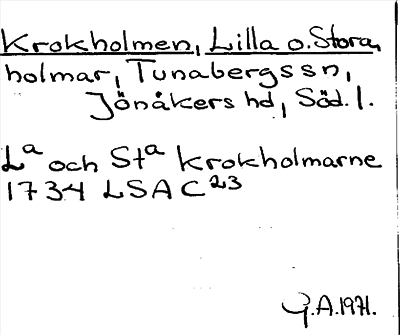 Krokholmen, Lilla o. Stora,
holmar, Tunabergs sn,
Jönåkers hd, Söd. l.
Lᵃ och Stᵃ Krokholmarne
1734 LSA C²³
G.A. 1971.